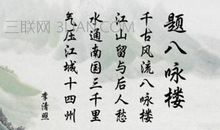 题八咏楼
千古风流八咏楼
江山留与后人愁
水通南国三千里
气压江城十四州
李清照
三联网